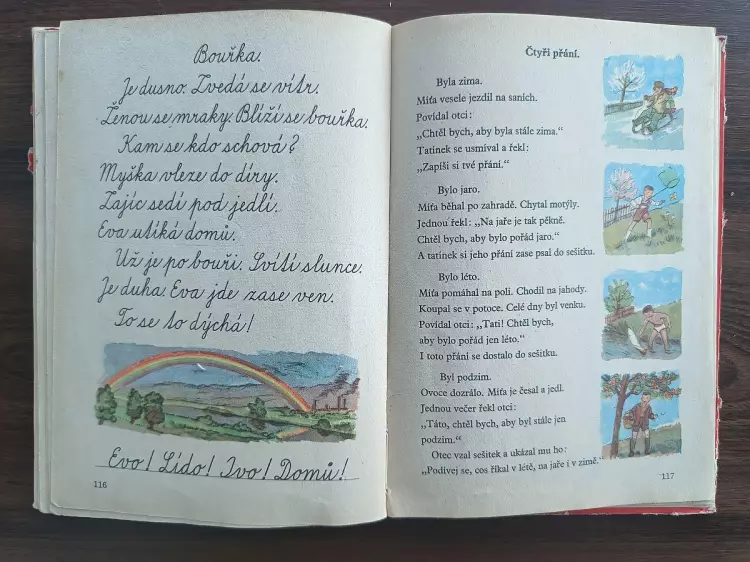 Bouřka.
Je dusno. Zvedá se vítr.
Ženou se mraky. Blíží se bouřka.
Kam se kdo schová?
Myška vleze do díry.
Zajíc sedí pod jedlí.
Eva utíká domů.
Už je po bouři. Svítí slunce.
Je duha. Eva jde zase ven.
To se to dýchá!
Evo! Lído! Ivo! Domů!
116
Čtyři přání.
Byla zima.
Míťa vesele jezdil na saních.
Povídal otci:
„Chtěl bych, aby byla stále zima.“
Tatínek se usmíval a řekl:
„Zapiši si tvé přání.“
Bylo jaro.
Míťa běhal po zahradě. Chytal motýly.
Jednou řekl: „Na jaře je tak pěkně.
Chtěl bych, aby bylo pořád jaro.“
A tatínek si jeho přání zase psal do sešitku.
Bylo léto.
Míťa pomáhal na poli. Chodil na jahody.
Koupal se v potoce. Celé dny byl venku.
Povídal otci: „Tati! Chtěl bych,
aby bylo pořád jen léto.“
I toto přání se dostalo do sešitku.
Byl podzim.
Ovoce dozrálo. Míťa je česal a jedl.
Jednou večer řekl otci:
„Táto, chtěl bych, aby byl stále jen
podzim.“
Otec vzal sešitek a ukázal mu ho:
„Podívej se, cos říkal v létě, na jaře i v zimě.“
117